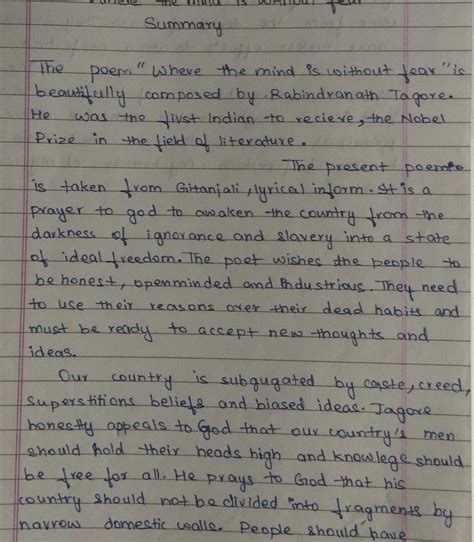 Where the mind is without fear
Summary
The poem "Where the mind is without fear" is
beautifully composed by Rabindranath Tagore.
He was the first Indian to recieve, the Nobel
Prize in the field of literature.
The present poem
is taken from Gitanjali, lyrical inform. It is a
prayer to god to awaken the country from the
darkness of ignorance and slavery into a state
of ideal freedom. The poet wishes the people to
be honest, openminded and Industrious. They need
to use their reasons over their dead habits and
must be ready to accept new thoughts and
ideas.
Our country is subgugated by caste, creed,
superstitions beliefs and biased ideas. Tagore
honestly appeals to God that our country's men
should hold their heads high and knowlege should
be free for all. He prays to God that his
country should not be divided into fragments by
narrow domestic walls. People should have